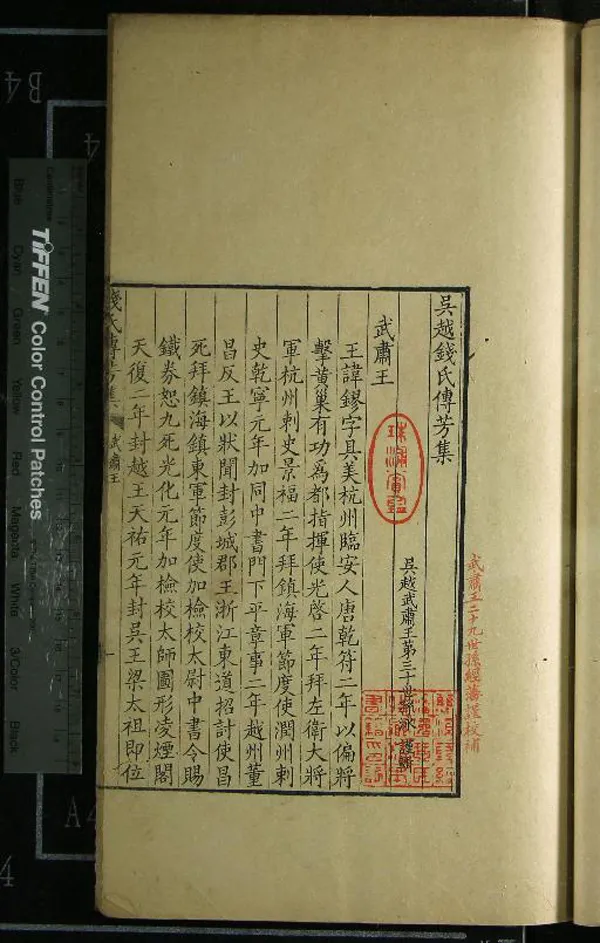 武肅王二十九世孫經籓謹校補
吳越錢氏傳芳集
吳越武肅王第三十世孫泳謹輯
武肅王
王諱鏐字具美杭州臨安人唐乾符二年以偏將
擊黃巢有功爲都指揮使光啓二年拜左衛大將
軍杭州刺史景福二年拜鎮海軍節度使潤州刺
史乾寧元年加同中書門下平章事二年越州董
昌反王以狀聞封彭城郡王浙江東道招討使昌
死拜鎮海鎮東軍節度使加檢校太尉中書令賜
鐵券恕九死光化元年加檢校太師圖形凌煙閣
天復二年封越王天祐元年封吳王梁太祖即位
錢氏傳芳集 武肅王 一
TIFFEN Color Control Patches
Blue Cyan Green Yellow Red Magenta White 3/Color Black
B4
4
A4
4